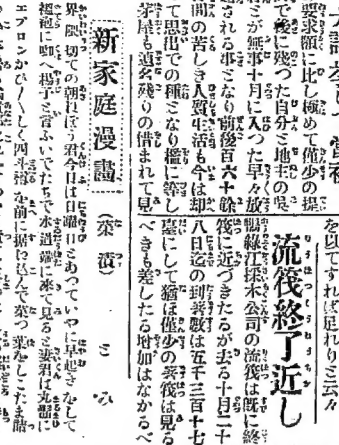 を以てすれば足れりと云々
流筏終了近し
鴨綠江採木公司の流筏は既に終
筏に近づきたるが去る十月二十
八日迄の到着數は五千三百十七
臺にして猶ほ僅少の着筏は見る
べきも差したる增加はなかるべ
要求額に比し極めて僅少の提
で後に殘つた自分と地主の吳
が無事十月に入つた早々放
される事となり前後百六十餘
間の苦しき人質生活も今は却
て思出での種となり檻に等し
茅屋も遺名殘りの借まれて見
新家庭漫畫
(菜漬)
界隈切ての朝ねぼう君今日は日曜日とあつていやに早起きをして
縕袍に咬へ楊子と云ふいでたちで水道端に來て見ると妻君は丸髷に
エプロンかひ〴〵しく四斗樽を前に据ゑ込んで菜つ葉をしこたま詰